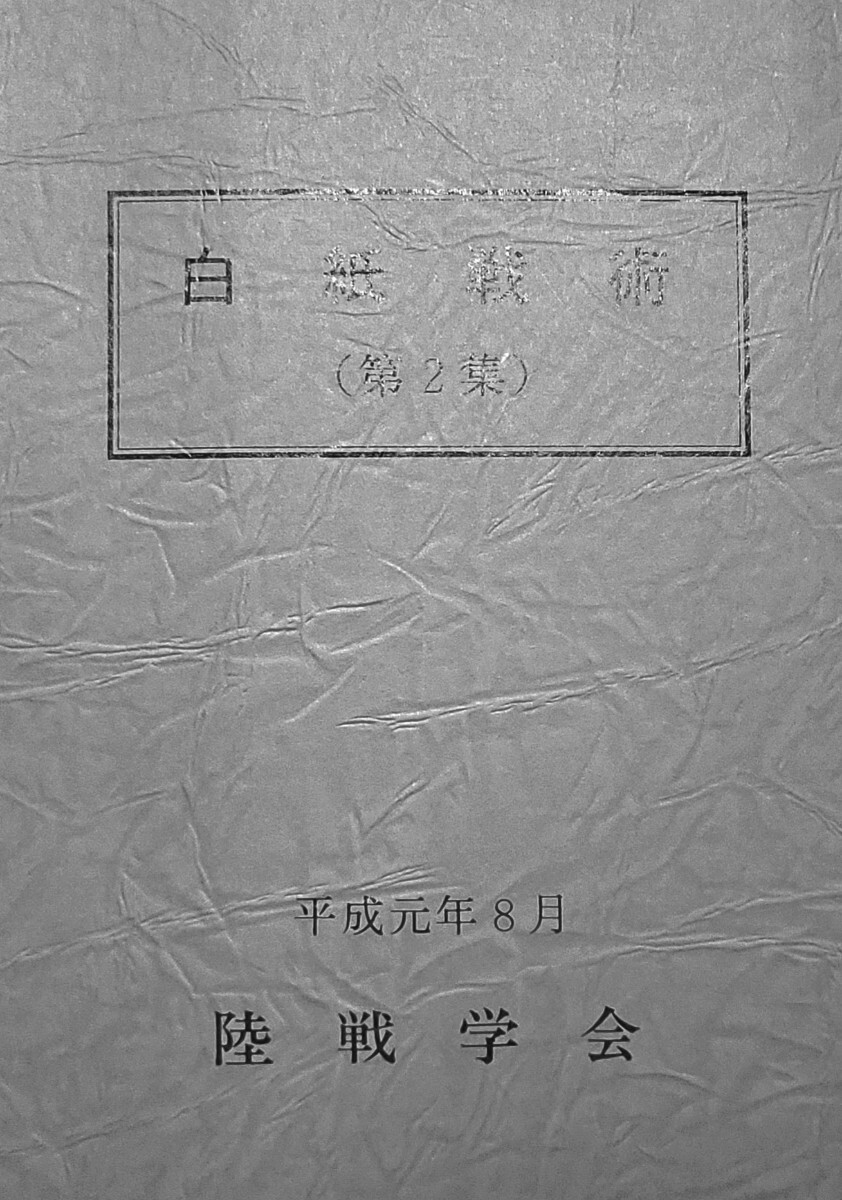 白紙戦術
（第2集）
平成元年8月
陸戦学会